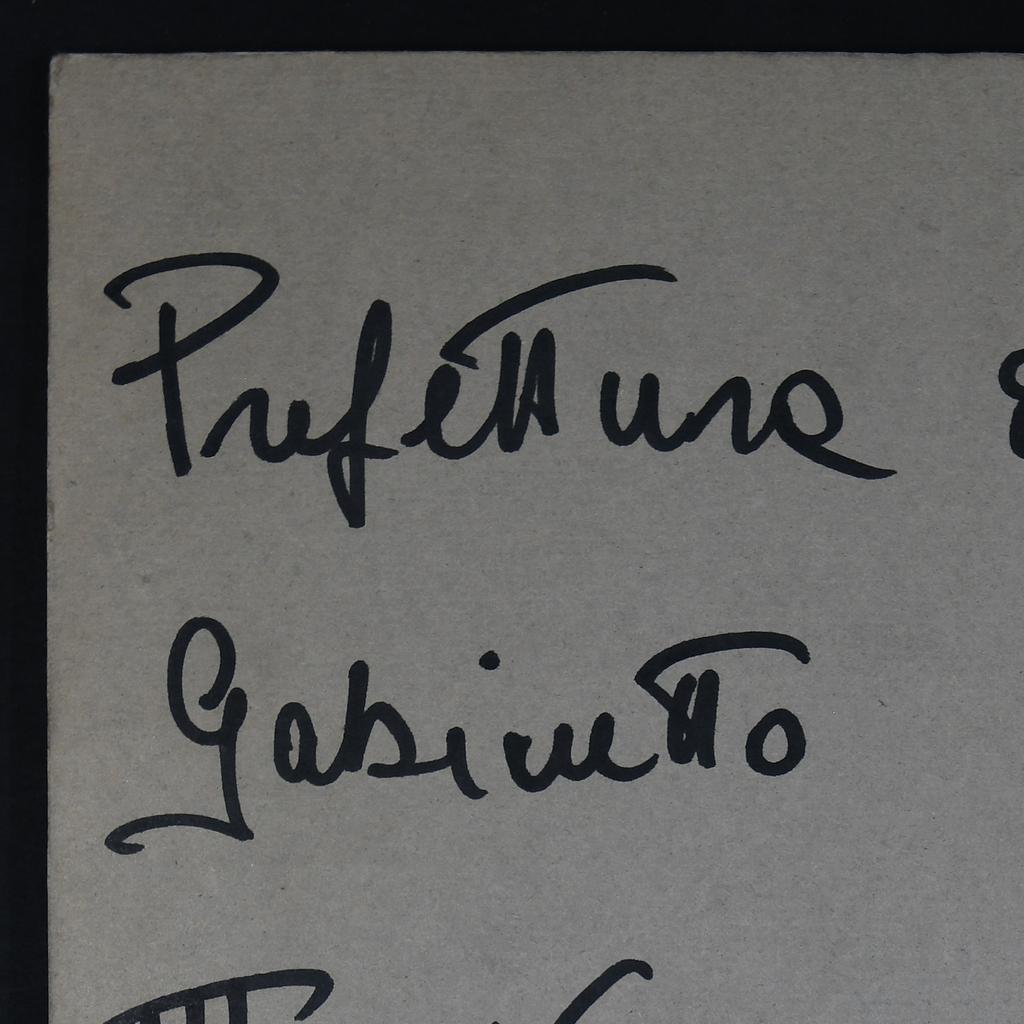 Prefettura
Gabinetto